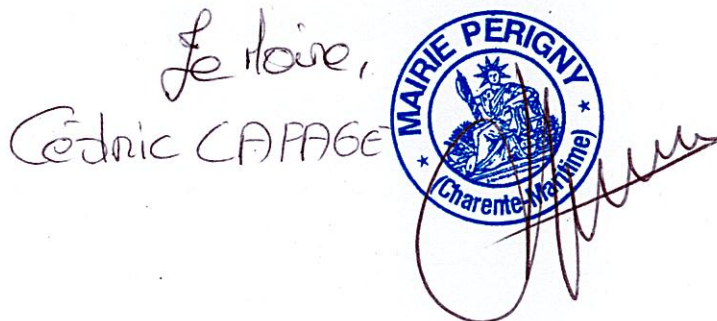 Le Maire,
Cédric CAPAGE
MAIRIE PERIGNY
(Charente-Maritime)